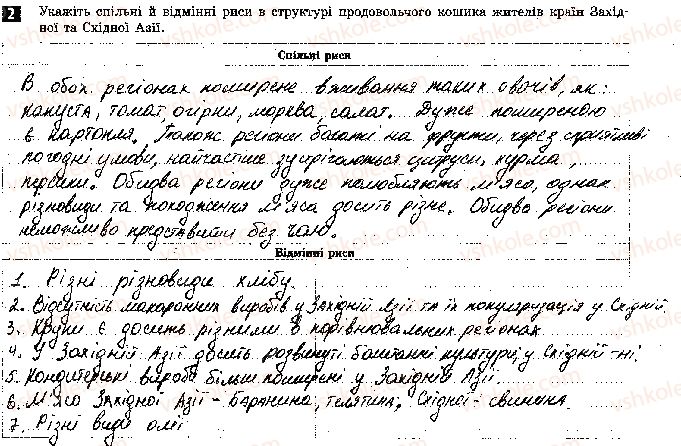 2 Укажіть спільні й відмінні риси в структурі продовольчого кошика жителів країн Захід-
ної та Східної Азії.
Спільні риси
В обох регіонах поширене вживання таких овочів, як:
капуста, томат, огірки, морква, салат. Дуже поширеною
є картопля. Також регіони багаті на фрукти, через сприятливі
погодні умови, найчастіше зустрічаються цитруси, курма,
персики. Обидва регіони дуже полюбляють м'ясо, однак
різновиди та походження м'яса досить різне. Обидва регіони
неможливо представити без чаю.
Відмінні риси
1. Різні різновиди хлібу
2. Відсутність макаронних виробів у Західній Азії та їх популяризація у Східній
3. Крупи є досить різними в порівнювальних регіонах
4. У Західній Азії досить розвинуті баштанні культури, у Східній ні.
5. Кондитерські вироби більш поширені у Західній Азії
6. М'ясо Західної Азії - баранина, телятина, Східної - свинина
7. Різні види олії